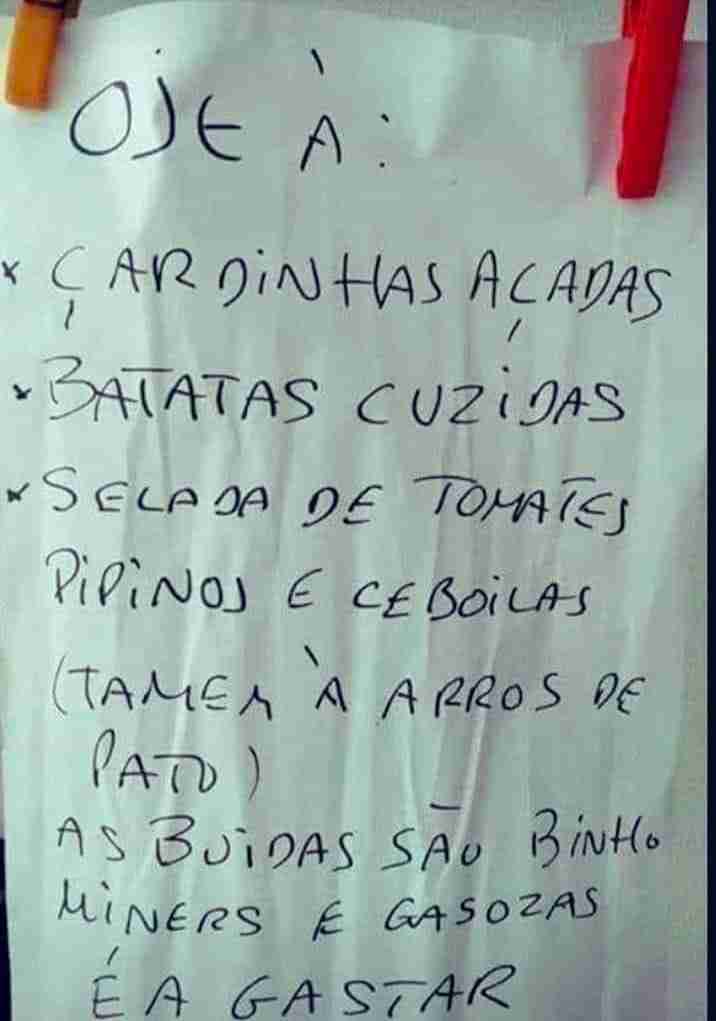 OJE À:
* ÇARDINHAS AÇADAS
* BATATAS CUZIDAS
* SELADA DE TOMATES
PIPINOS E CEBOILAS
(TAMEM À ARROS DE
PATO)
AS BUIDAS SÃO BINHO
MINERS E GASOZAS
É A GASTAR